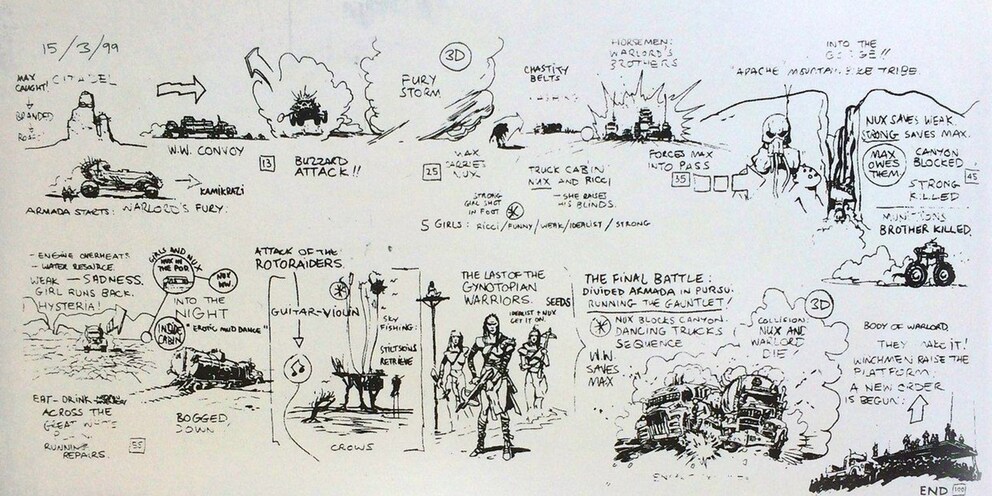 15/3/99
MAX
CAUGHT!
BRANDED
CITADEL
W.W. CONVOY
13
BUZZARD
ATTACK!!
FURY
STORM
3D
25
MAX
NUX
CHASTITY
BELTS
HORSEMEN:
WARLORD'S
BROTHERS
TRUCK CABIN
NUX AND RICCI
- SHE RAISES
HIS BLINDS.
STRONG
GIRL SHOT
IN FOOT
5 GIRLS: RICCI/FUNNY/WEAK/IDEALIST/STRONG
FORCES MAX
INTO PASS
35
INTO THE
GORGE!!
APACHE MOUNTAIN BIKE TRIBE.
NUX SAVES WEAK
STRONG SAVES MAX.
MAX
OWES
THEM
CANYON
BLOCKED
45
STRONG
KILLED
MUNITIONS
BROTHER KILLED.
KAMIKRAZI
ARMADA STARTS: WARLORD'S FURY.
- ENGINE OVERHEATS
- WATER RESOURCE.
WEAK - SADNESS.
GIRL RUNS BACK.
HYSTERIA!
GIRLS AND NUX
NUX IN
THE POD
NUX
WW
INTO THE
NIGHT
INSIDE
CABIN
"EROTIC MUD DANCE"
EAT - DRINK -
ACROSS THE
GREAT
RUNNING
REPAIRS.
55
BOGGED
DOWN
ATTACK OF THE
ROTORAIDERS.
GUITAR-VIOLIN
SKY
FISHING:
STILTSONS
RETRIEVE
CROWS
THE LAST OF THE
GYNOTOPIAN
WARRIORS.
SEEDS
IDEALIST + NUX
GET IT ON.
THE FINAL BATTLE:
DIVIDED ARMADA IN PURSU.
RUNNING THE GAUNTLET!
NUX BLOCKS CANYON.
DANCING TRUCKS
SEQUENCE
W.W.
SAVES
MAX
COLLISION:
NUX AND
WARLORD
DIE!
3D
BODY OF WARLORD
THEY MAKE IT!
WINCHMEN RAISE THE
PLATFORM.
A NEW ORDER
IS BEGUN.
END 100